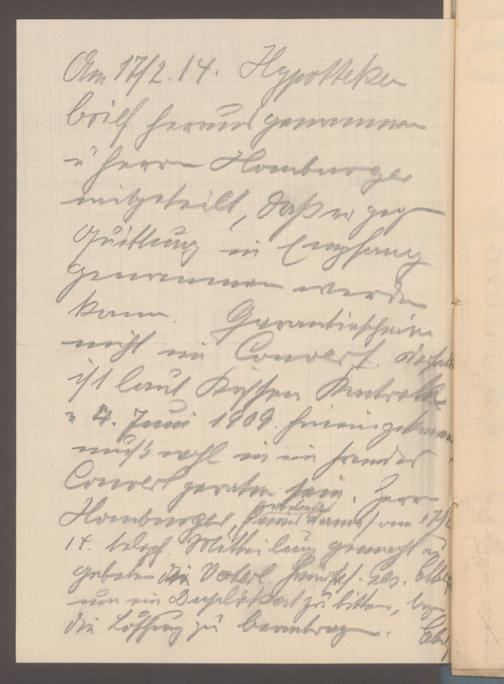 Am 17/2.14. Hypotheken
brief herausgenommen
u Herrn Homburger
mitgeteilt, daß er geg
Quittung in Empfang
genommen werden
kann. Garantieschein
nicht im Couvert. Derselbe
ist laut Kassen
4. Juni 1909. hineingekommen
muß wohl in ein fremdes
Couvert geraten sein. Herrn
Homburger, am 17/2
14. telegr. Mitteilung gemacht u
gebeten die Vaterl.
um ein Duplikat zu bitten, bezw
die Löschung zu beantragen.